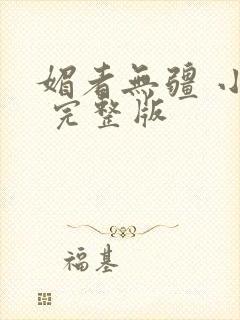 媚者無疆 小
完整版
福基